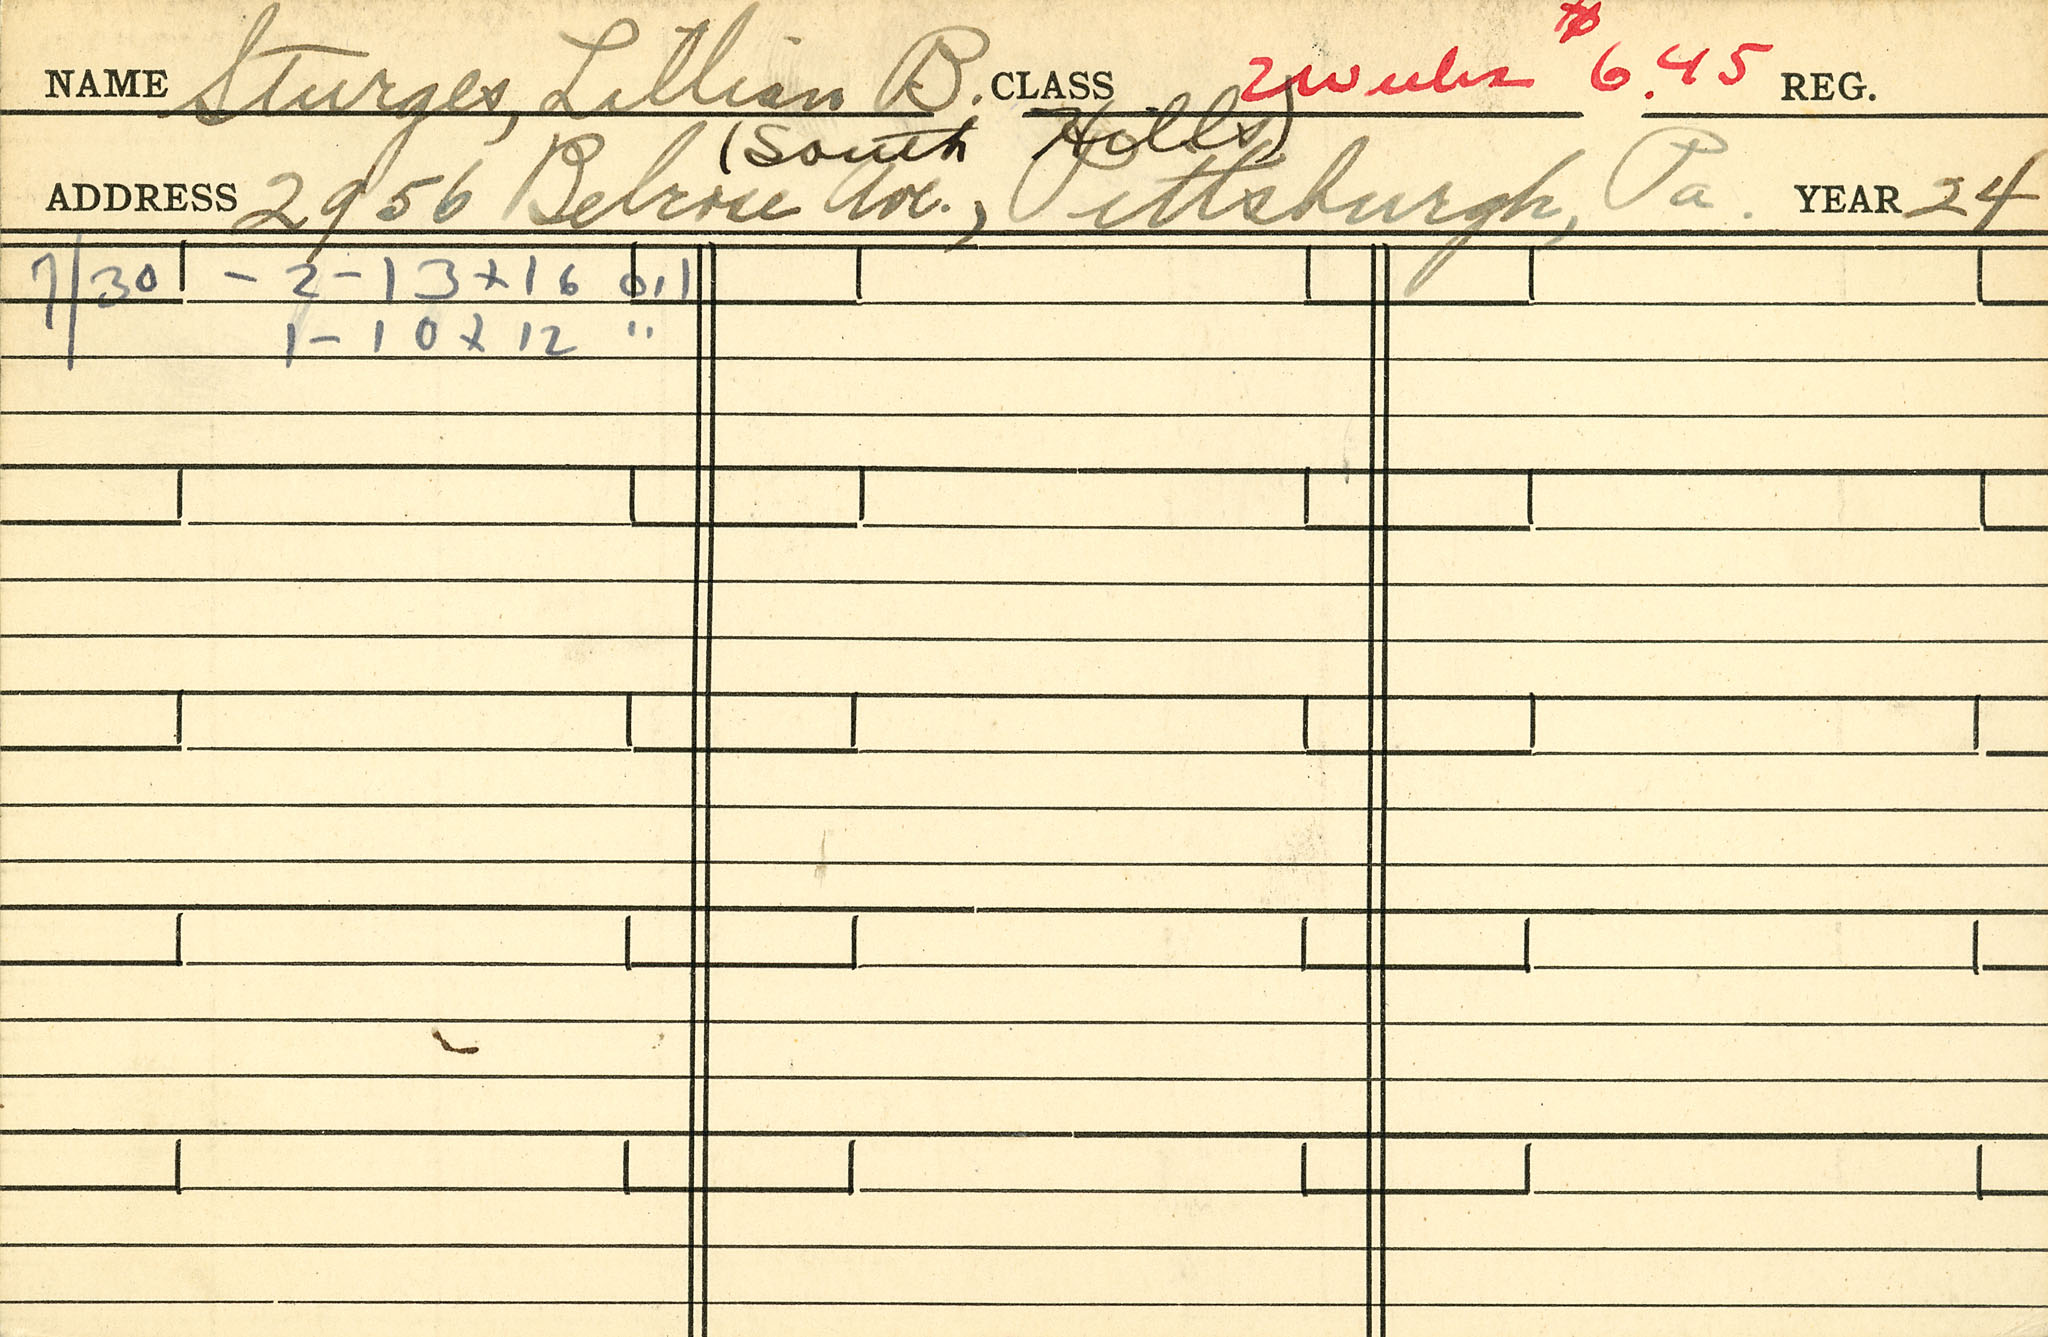 NAME Sturges, Lillian B. CLASS 2 Weeks $6.45 REG.
(South Hills)
ADDRESS 2956 Belrose Ave., Pittsburgh, Pa. YEAR 24
7/30 - 2 - 13 x 16 oil
1 - 10 x 12 "